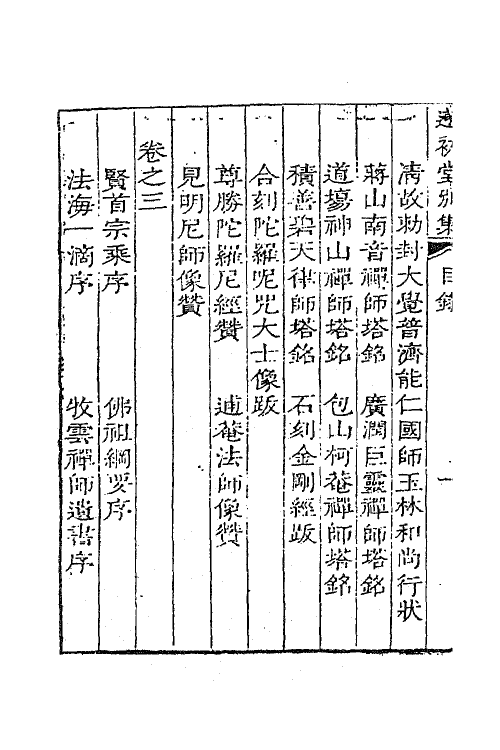 遂初堂別集 目錄 一
清故勅封大覺普濟能仁國師玉林和尚行狀
蔣山南音禪師塔銘 廣潤巨靈禪師塔銘
道場神山禪師塔銘 包山柯菴禪師塔銘
積善碧天律師塔銘 石刻金剛經跋
合刻陀羅呢咒大士像跋
尊勝陀羅尼經贊 逋菴法師像贊
見明尼師像贊
卷之三
賢首宗乘序 佛祖綱要序
法海一滴序 牧雲禪師遺書序